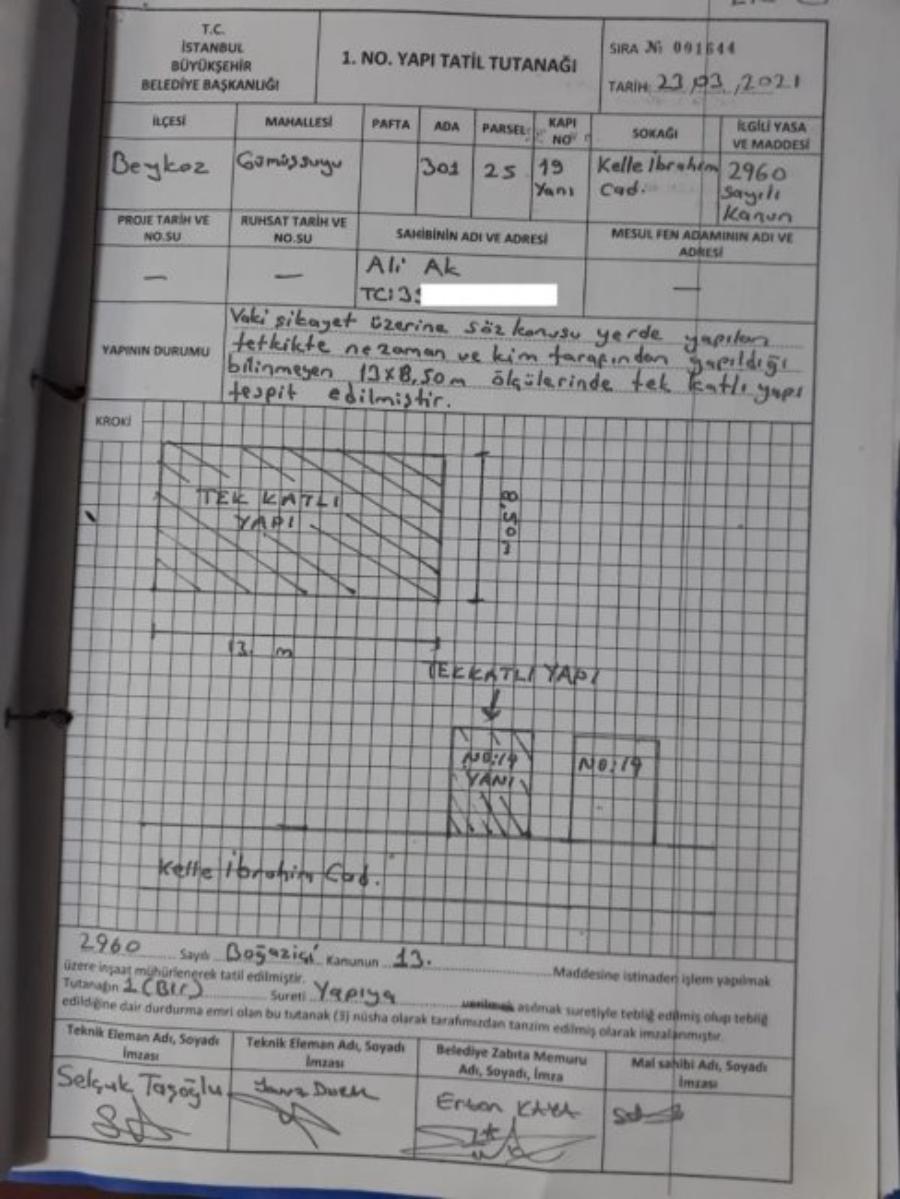 T.C.
İSTANBUL
BÜYÜKŞEHİR
BELEDİYE BAŞKANLIĞI
1. NO. YAPI TATİL TUTANAĞI
SIRA № 001644
TARİH: 23,03,2021
İLÇESİ MAHALLESİ PAFTA ADA PARSEL KAPI NO SOKAĞI İLGİLİ YASA VE MADDESİ
Beykoz Gümüşsuyu 301 25 19 Yanı Kelle İbrahim Cad. 2960 Sayılı Kanun
PROJE TARİH VE NO.SU RUHSAT TARİH VE NO.SU SAHİBİNİN ADI VE ADRESİ MESUL FEN ADAMININ ADI VE ADRESİ
— — Ali Ak —
TC:
YAPININ DURUMU
Vaki şikayet üzerine söz konusu yerde yapılan
tetkikte ne zaman ve kim tarafından yapıldığı
bilinmeyen 13x8,50m ölçülerinde tek katlı yapı
tespit edilmiştir.
KROKİ
TEK KATLI
YAPI
8,50m
13. m
TEK KATLI YAPI
NO:19
YANI
NO:19
Kelle İbrahim Cad.
2960 Sayılı Boğaziçi Kanunun 13. Maddesine istinaden işlem yapılmak
üzere inşaat mühürlenerek tatil edilmiştir.
Tutanağın 1 (Bir) Sureti Yapıya verilmek asılmak suretiyle tebliğ edilmiş olup tebliğ
edildiğine dair durdurma emri olan bu tutanak (3) nüsha olarak tarafımızdan tanzim edilmiş olarak imzalanmıştır.
Teknik Eleman Adı, Soyadı İmzası
Teknik Eleman Adı, Soyadı İmzası
Belediye Zabıta Memuru Adı, Soyadı, İmza
Mal sahibi Adı, Soyadı İmzası
Selçuk Taşoğlu